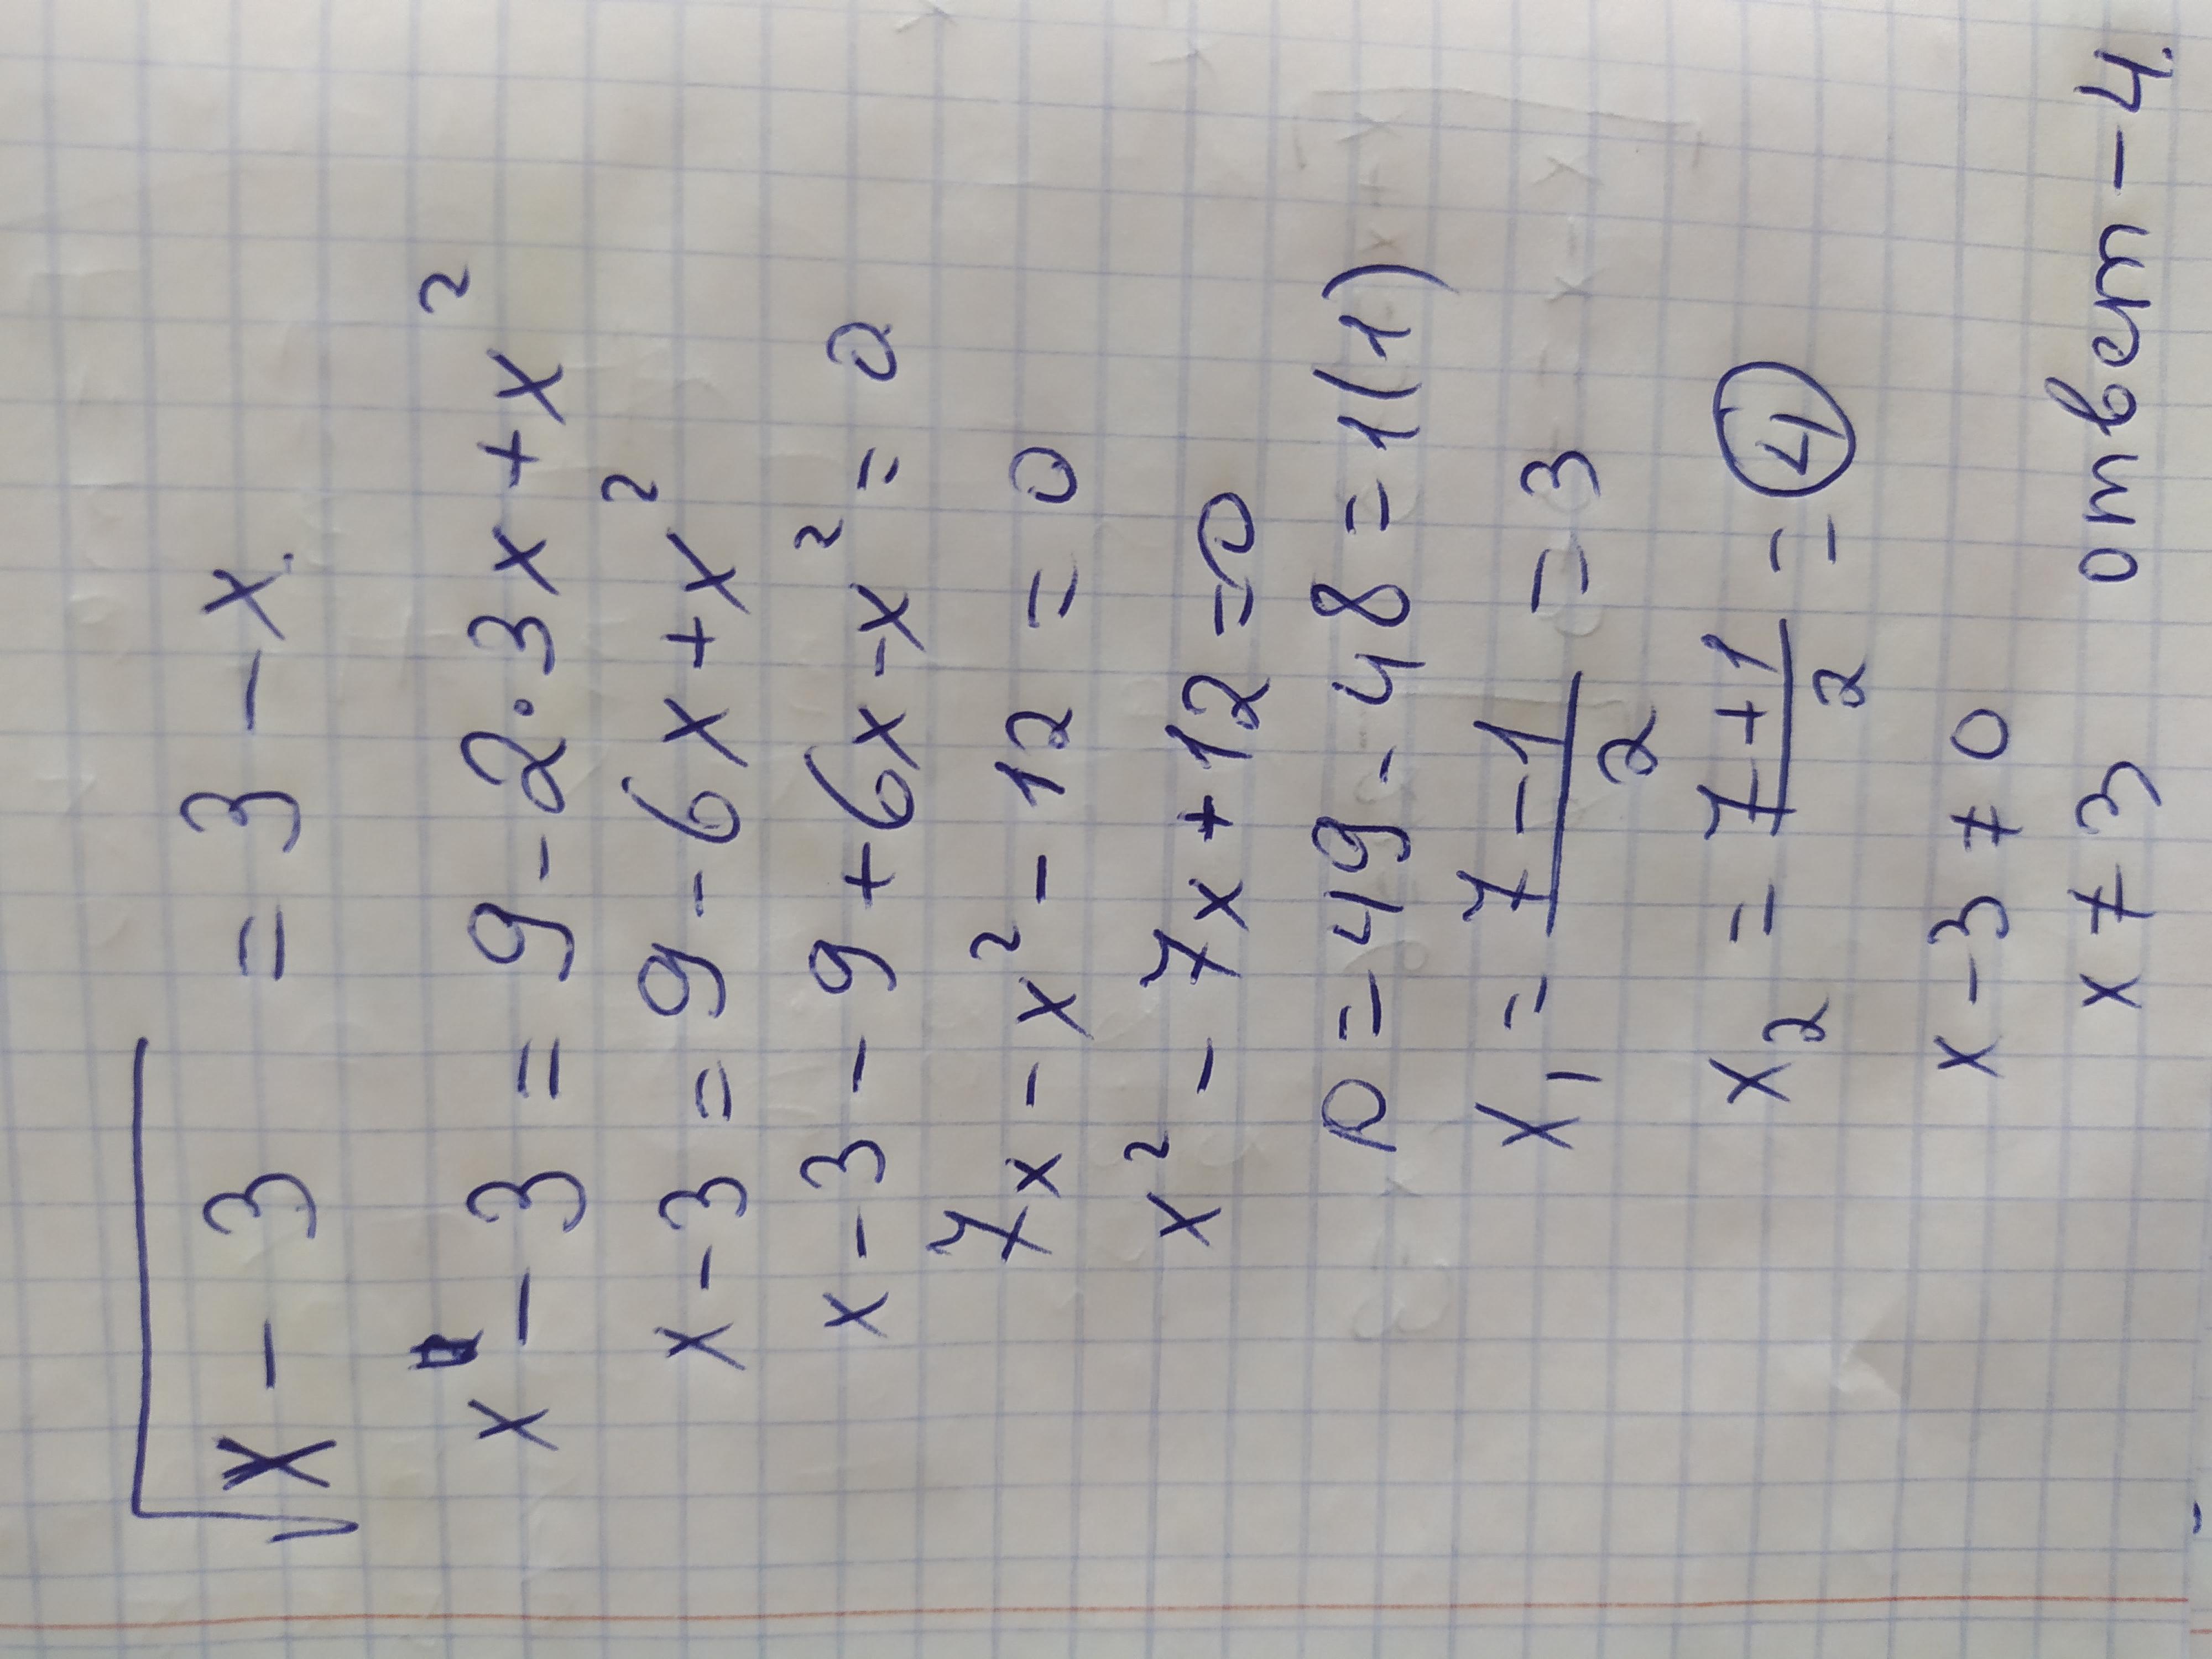 √(x - 3) = 3 - x.
x - 3 = 9 - 2·3x + x²
x - 3 = 9 - 6x + x²
x - 3 - 9 + 6x - x² = 0
7x - x² - 12 = 0
x² - 7x + 12 = 0
D = 49 - 48 = 1(1)
x₁ = (7 - 1)/2 = 3
x₂ = (7 + 1)/2 = 4
x - 3 ≠ 0
x ≠ 3 ответ - 4.